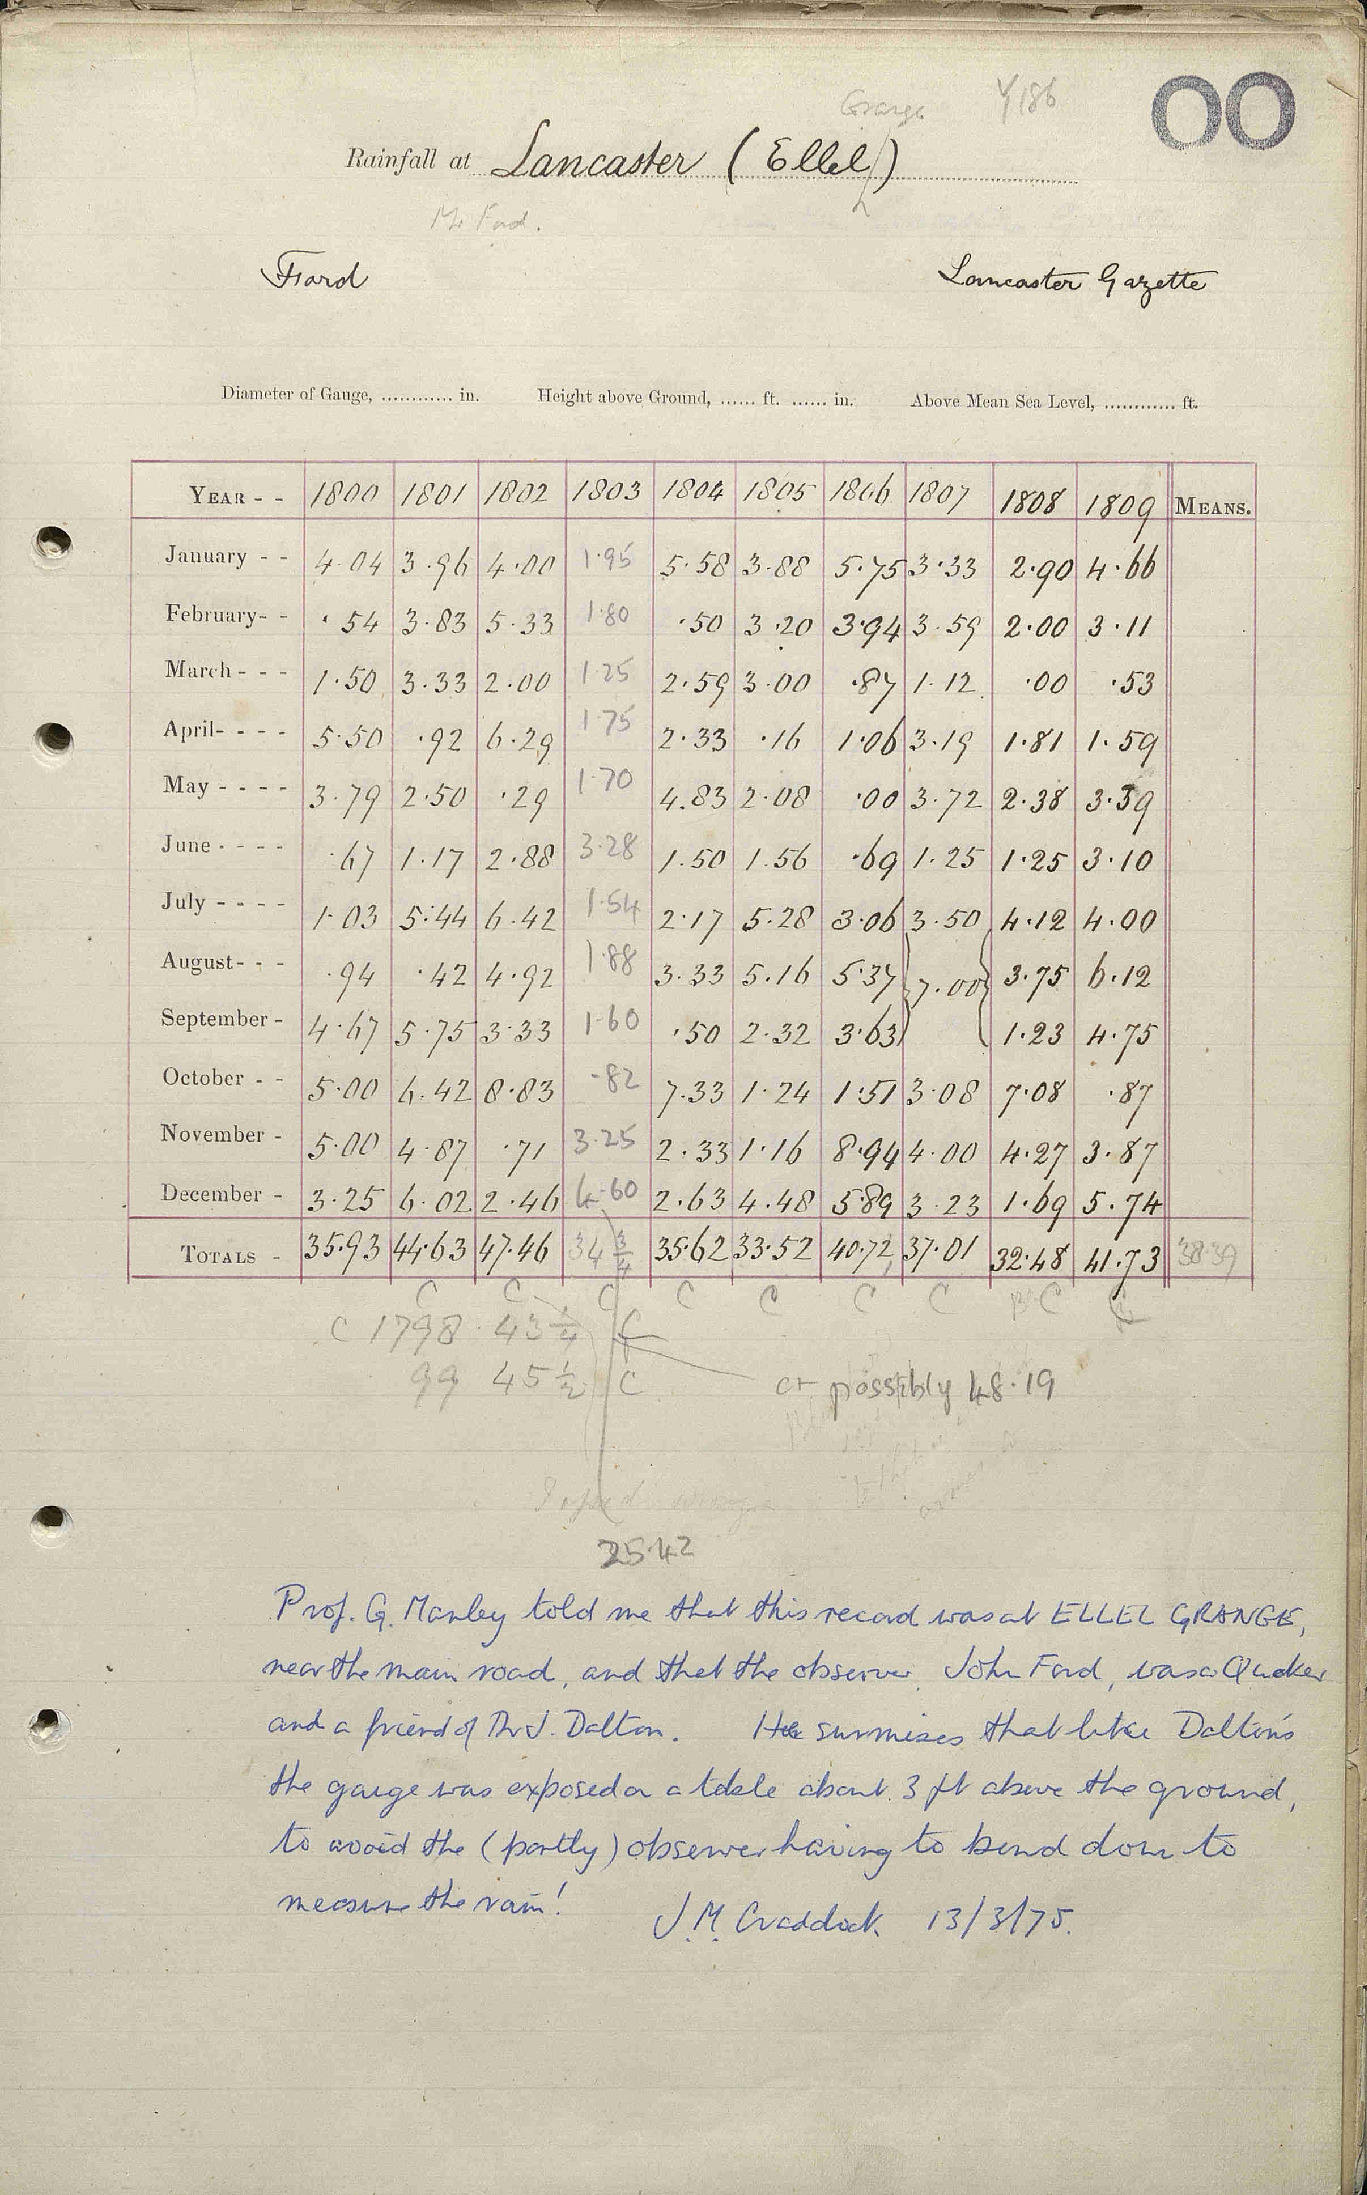 Grange Y186 00
Rainfall at Lancaster (Ellel)
Mr Ford.
Ford Lancaster Gazette
Diameter of Gauge, ............ in. Height above Ground, ...... ft. ...... in. Above Mean Sea Level, ............ ft.
YEAR - - 1800 1801 1802 1803 1804 1805 1806 1807 1808 1809 MEANS.
January - - 4.04 3.96 4.00 1.95 5.58 3.88 5.75 3.33 2.90 4.66
February- - .54 3.83 5.33 1.80 .50 3.20 3.94 3.59 2.00 3.11
March - - - 1.50 3.33 2.00 1.25 2.59 3.00 .87 1.12 .00 .53
April- - - - 5.50 .92 6.29 1.75 2.33 .16 1.06 3.19 1.81 1.59
May - - - - 3.79 2.50 .29 1.70 4.83 2.08 .00 3.72 2.38 3.39
June - - - - .67 1.17 2.88 3.28 1.50 1.56 .69 1.25 1.25 3.10
July - - - - 1.03 5.44 6.42 1.54 2.17 5.28 3.06 3.50 4.12 4.00
August- - - .94 .42 4.92 1.88 3.33 5.16 5.37 7.00 3.75 6.12
September - 4.67 5.75 3.33 1.60 .50 2.32 3.63 1.23 4.75
October - - 5.00 6.42 8.83 .82 7.33 1.24 1.51 3.08 7.08 .87
November - 5.00 4.87 .71 3.25 2.33 1.16 8.94 4.00 4.27 3.87
December - 3.25 6.02 2.46 4.60 2.63 4.48 5.89 3.23 1.69 5.74
TOTALS - 35.93 44.63 47.46 34 3/4 35.62 33.52 40.72 37.01 32.48 41.73 38.39
C C C C C C C C
C 1798 43 1/4 C
99 45 1/2 C or possibly 48.19
25.42
Prof. G. Manley told me that this record was at ELLEL GRANGE,
near the main road, and that the observer, John Ford, was a Quaker
and a friend of Dr J. Dalton. He surmises that like Dalton's
the gauge was exposed on a table about 3 ft above the ground,
to avoid the (portly) observer having to bend down to
measure the rain!
J. M. Craddock 13/3/75.